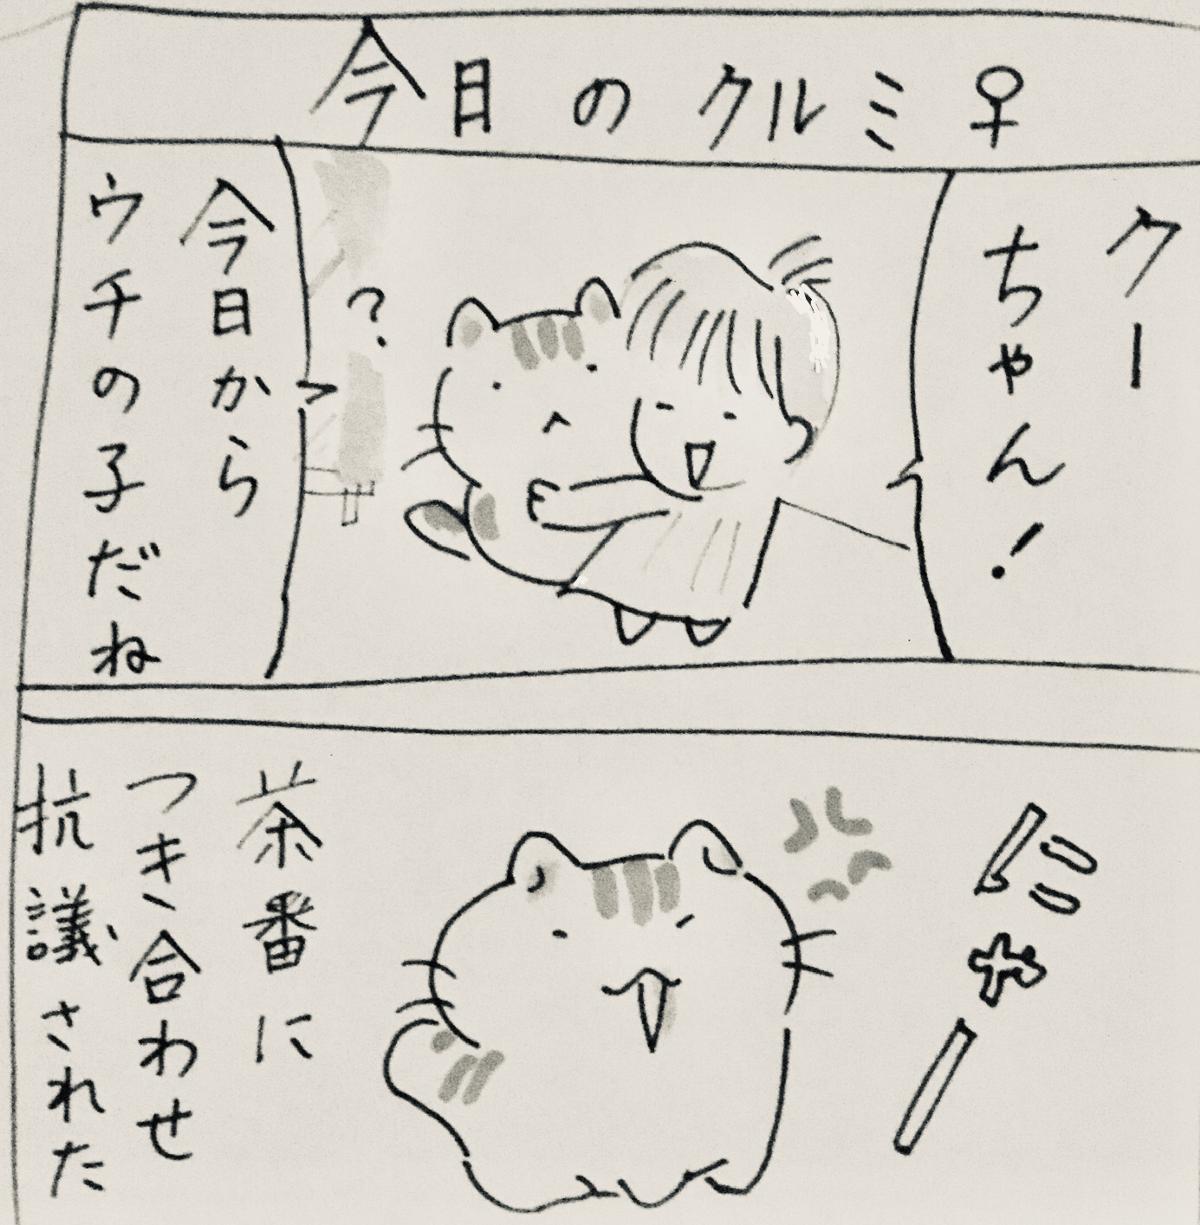 今日のクルミ♀
クー
ちゃん!
?
今日から
ウチの子だね
にゃー
茶番に
つき合わせ
抗議された